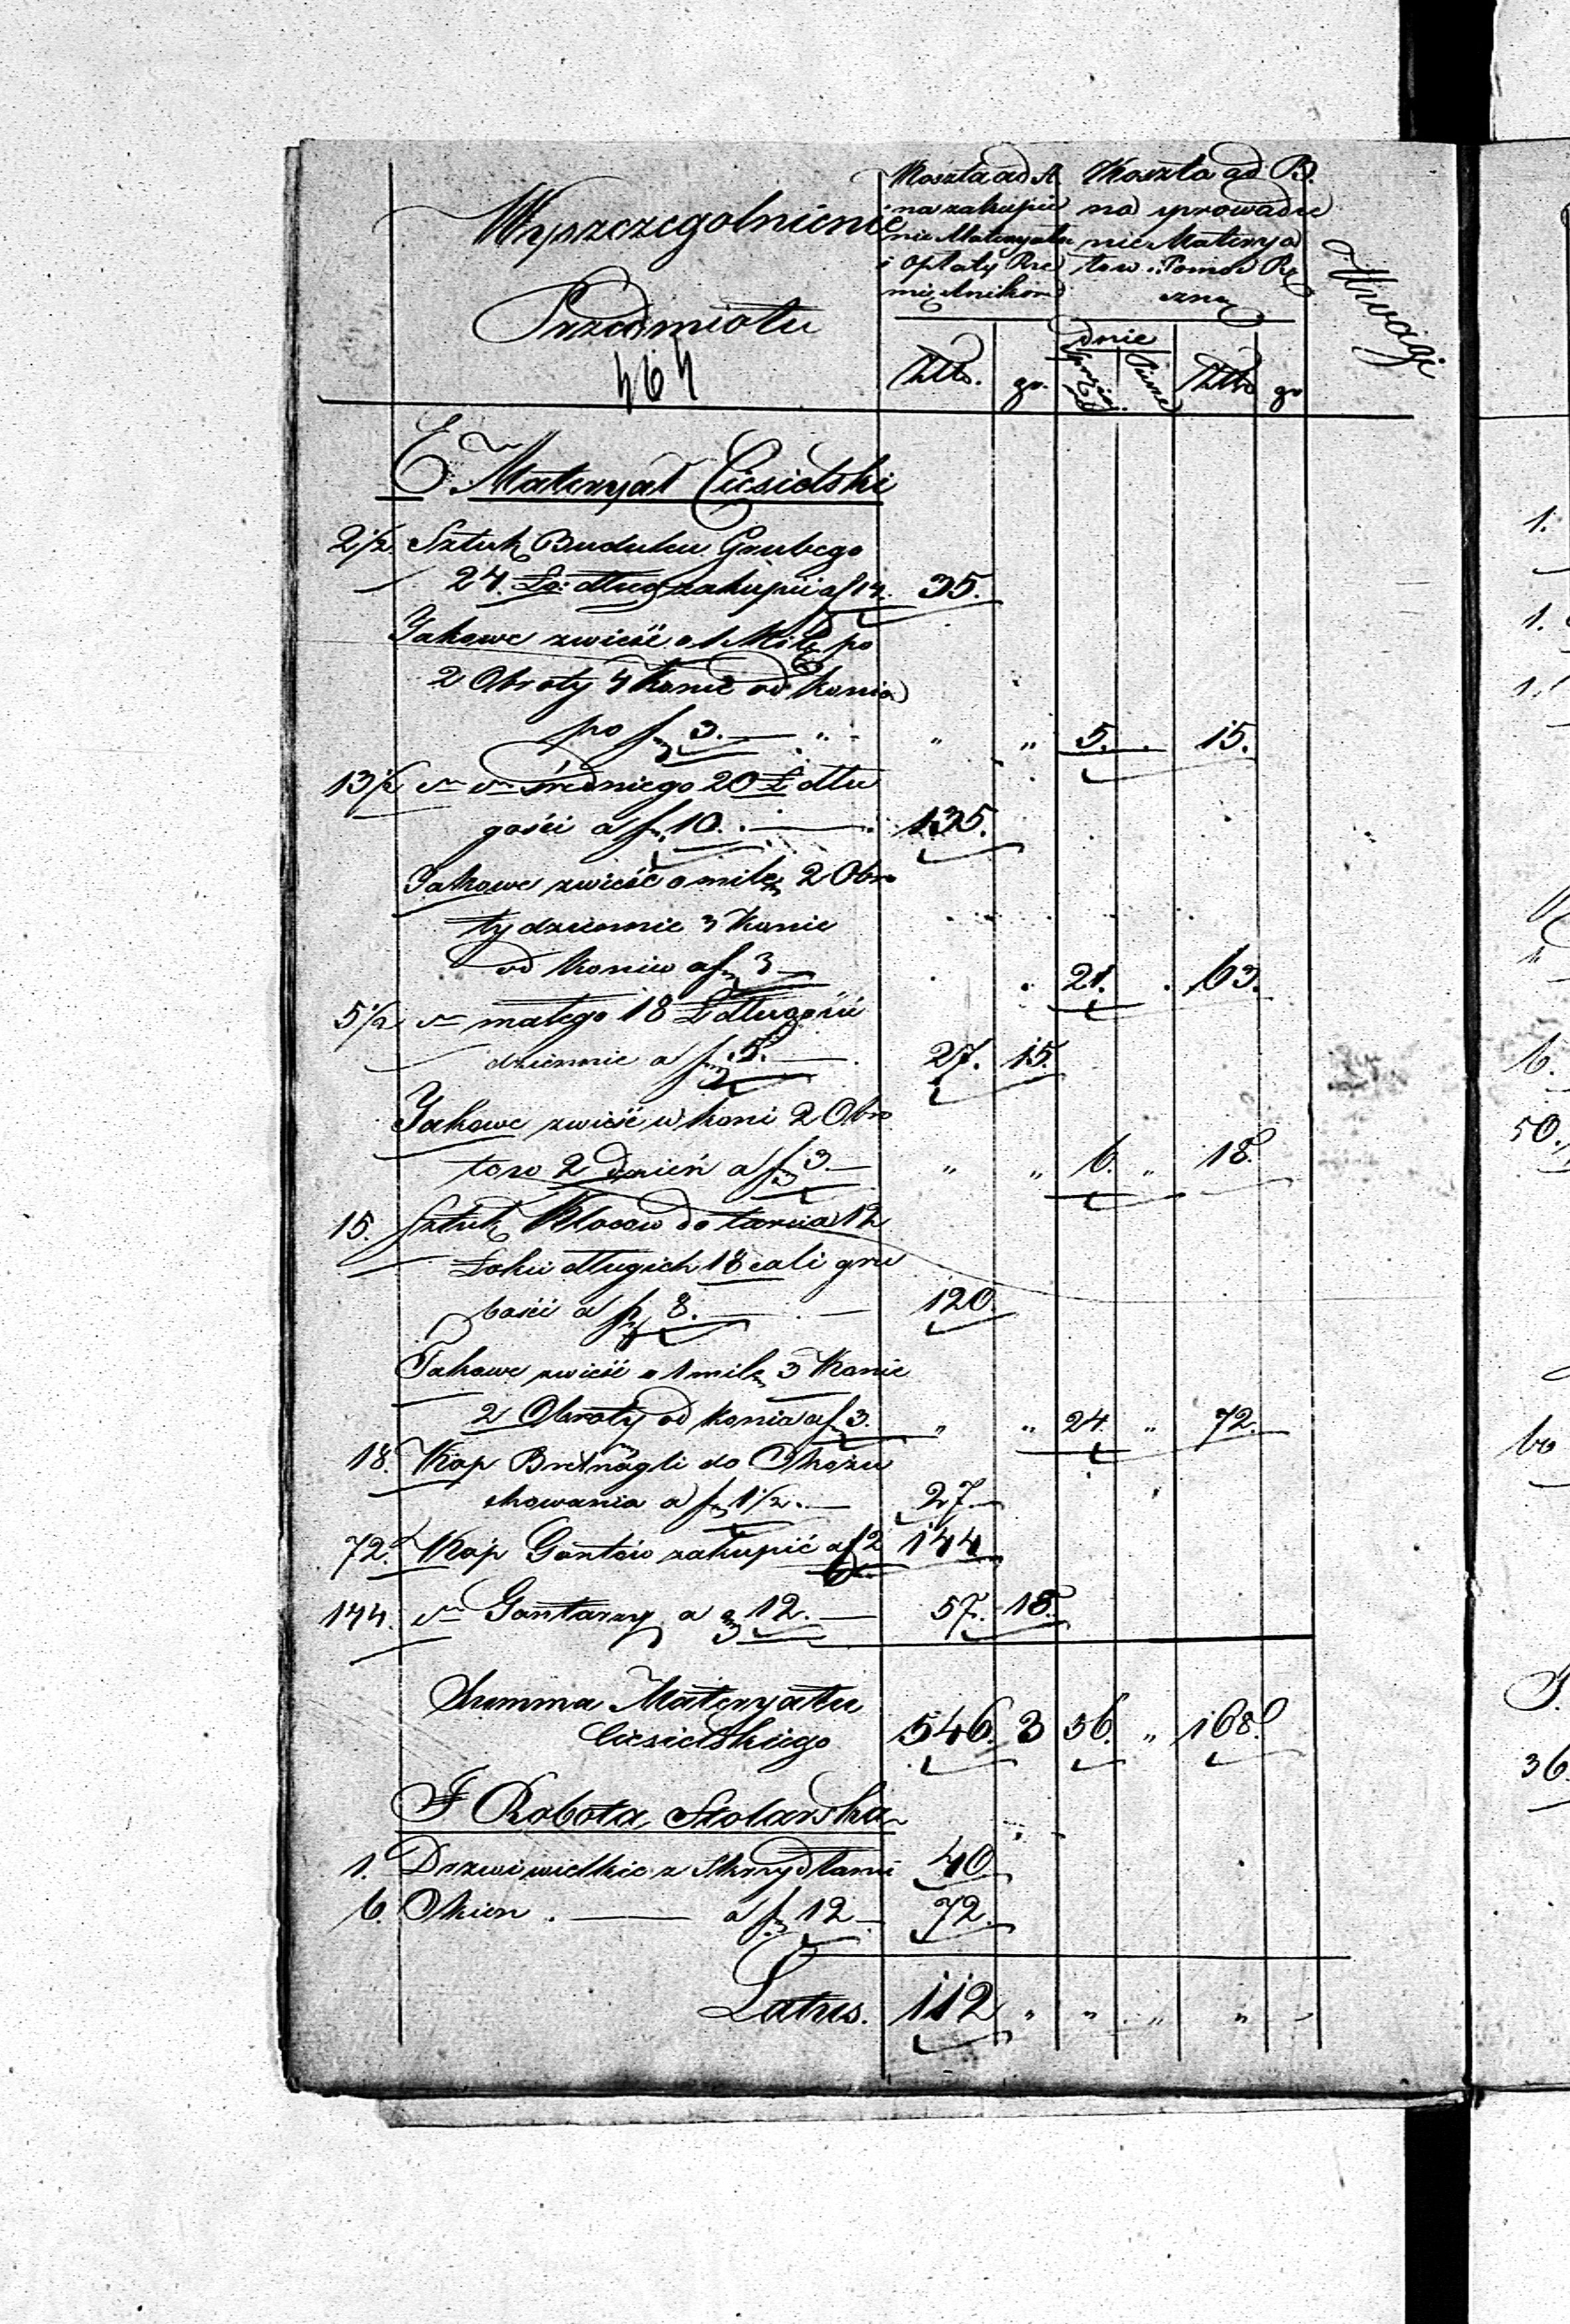 Wyszczegolnienie
Przedmiotu
464
Koszta ad A.
na zakupie
nie Materyału
i Opłaty Rze
mieślnikow
Koszta ad B.
na sprowadze
nie Materya
łow i Pomoc Rę
czną
Uwagi
dnie
Złto. gr. Piesze Złto gr
E. Materyał Ciesielski
2 1/2 Sztuk Budulcu Grubego
24. Ło: długo zakupić a f 14. 35.
Jakowe zwieść o 1 Milę po
2 Obroty 4 konie od konia
po f 3. — " " " 5. . 15.
13 1/2 dto dto średniego 20 Ł dłu
gości a f 10. — 135.
Jakowe zwieść o milę 2 Obro
ty dziennie 3 konie
od koni a f 3 — 21. 63.
5 1/2 dto małego 18 Ł długości
dziennie a f 5. — 27. 15.
Jakowe zwieść w koni 2 Obro
tow 2 dzień a f 3. — " " 6. " 18.
15. Sztuk Klocow do tarcia 12
Łokci długich 18 cali gru
bości a f 8. — 120.
Takowe zwieść o 1 milę 3 konie
2 Obroty od konia a f 3. " " 24. " 72.
18. Kop Bretnągli do Oszalo
chowania a f 1 1/2. — 27 —
72. Kop Gontów zakupić a f 2 144
144. dto Gontarzy a g 12. — 57. 18.
Summa Materyału
Ciesielskiego 546. 3 56. " 168.
F Robota Stolarska
1. Drzwi wielkie z Skrzydłami 40
6. Okien . — a f 12 — 72.
Latus. 112 " " " " -